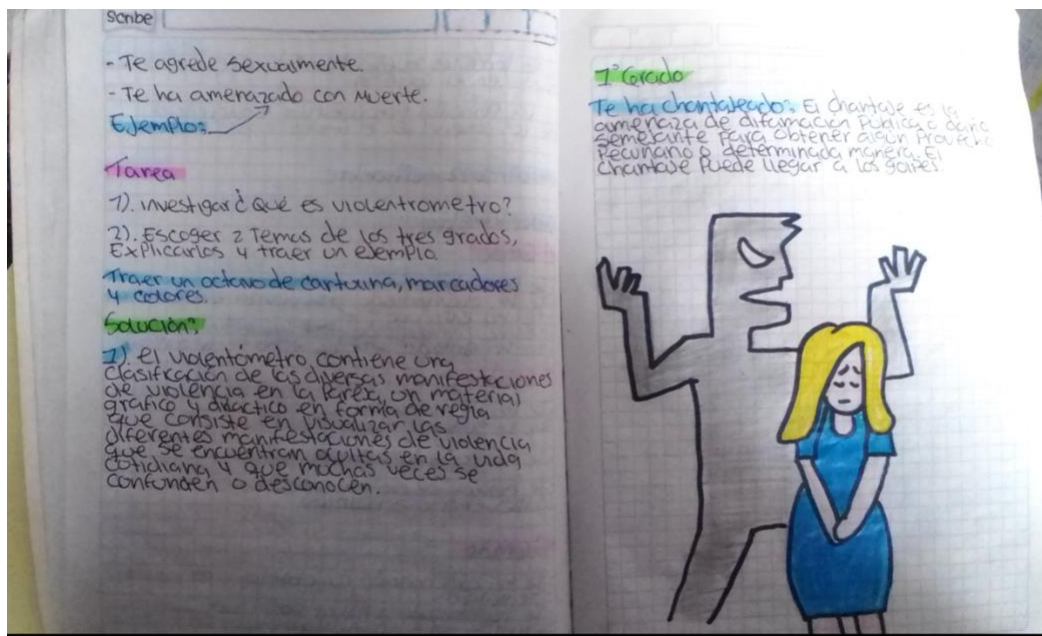 Scribe
- Te agrede sexualmente.
- Te ha amenazado con muerte.
Ejemplo:
Tarea
1). investigar ¿ Qué es violentrometro?
2). Escoger 2 Temas de los tres grados,
Explicarlos y traer un ejemplo
Traer un octavo de cartulina, marcadores
y colores.
Solución:
1). el violentómetro contiene una
clasificación de las diversas manifestaciones
de violencia en la Pareja, un material
gráfico y didáctico en forma de regla
que consiste en visualizar las
diferentes manifestaciones de violencia
que se encuentran ocultas en la vida
cotidiana y que muchas veces se
confunden o desconocen.
1° Grado
Te ha chantaleado: El chantaje es la
amenaza de difamación Pública o daño
semejante para obtener algún Provecho
Pecuniario o determinada manera. El
chantaje Puede llegar a los golpes.